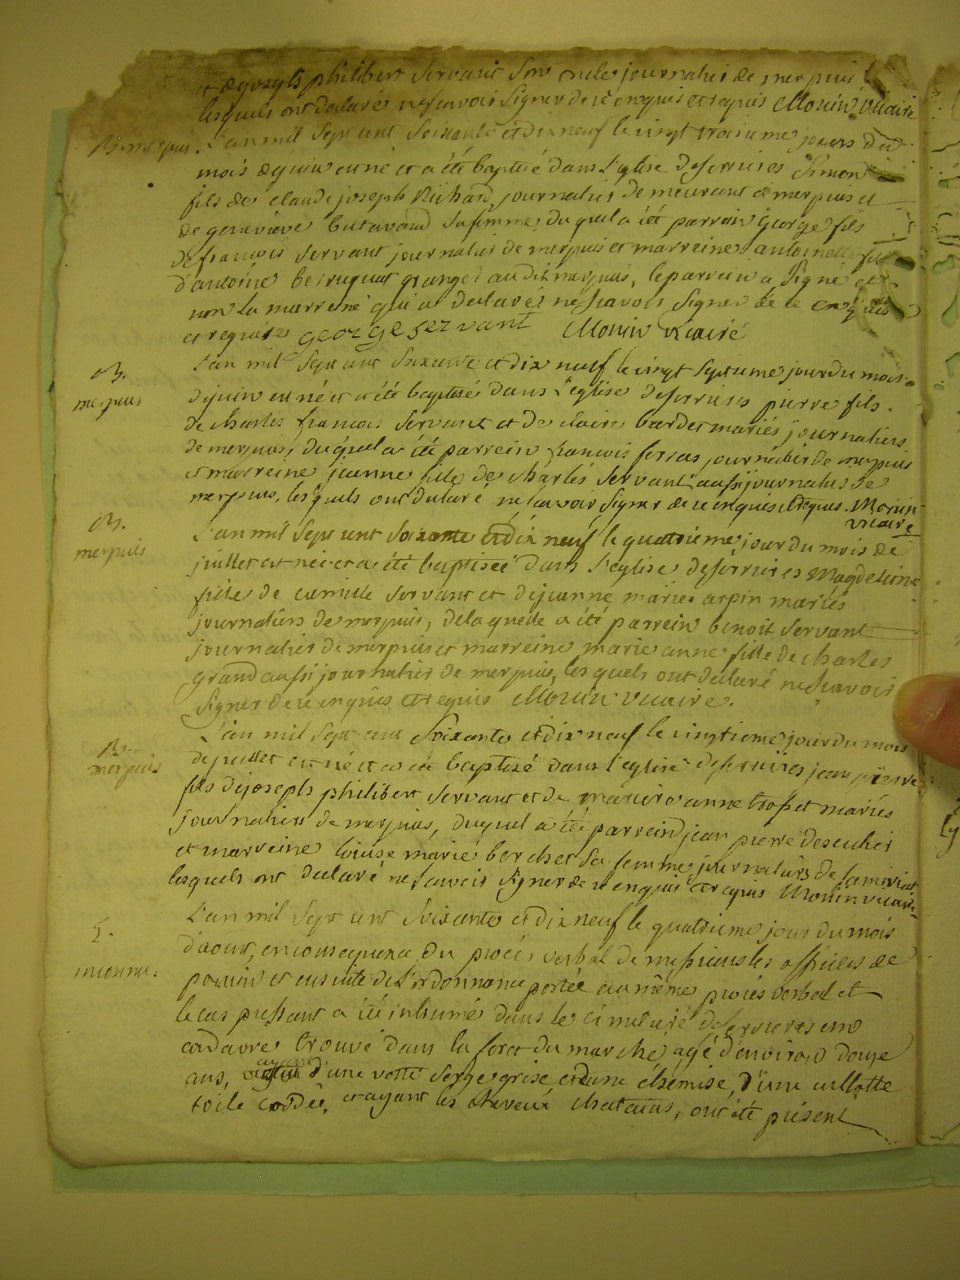 et de joseph philibert Servant son oncle journalier de merpuis
lesquels ont declarés ne scavoir signer de ce enquis et requis Monin vicaire
B. merpuis. L'an mil sept cent soixante et dix neuf le vingt troisieme jours du
mois de juin est né et a été baptisé dans l'eglise de serrieres Simon
fils de claude joseph Richard journalier de meurant de merpuis et
de genevieve butavand sa femme, du quel a été parrein George fils
de francois servant journalier de merpuis et marreine antoinette fille
d'antoine granger au dit merpuis, le parrein a signé et
non la marreine qui a declarés ne scavoir signer de ce enquis
et requises george servant Monin vicaire
B. merpuis
L'an mil sept cent soixante et dix neuf le vingt septieme jour du mois
de juin est né et a été baptisé dans l'eglise de serrieres pierre fils
de charles francois servant et de claire bardet mariés journaliers
de merpuis, du quel a été parrein francois journalier de merpuis
et marreine jeanne fille de charles servant aussi journalier de
merpuis, lesquels ont declaré ne scavoir signer de ce enquis et requis. Monin
vicaire
B. merpuis
L'an mil sept cent soixante et dix neuf le quatrieme jour du mois de
juillet est née et a été baptisée dans l'eglise de serrieres Magdeleine
fille de camille servant et de jeanne marie arpin mariés
journaliers de merpuis, de laquelle a été parrein benoit servant
journalier de merpuis et marreine marie anne fille de charles
grand aussi journalier de merpuis, lesquels ont declaré ne scavoir
signer de ce enquis et requis Monin vicaire.
B. merpuis
L'an mil sept cent soixante et dix neuf le vingtieme jour du mois
de juillet est né et a été baptisé dans l'eglise de serrieres jean pierre
fils de joseph philibert servant et de anne mariés
journaliers de merpuis, du quel a été parrein jean pierre descuches
et marreine louise marie berchet sa femme journaliers de
lesquels ont declaré ne scavoir signer de ce enquis et requis Monin vicaire
S. inconnu.
L'an mil sept cent soixante et dix neuf le quatrieme jour du mois
d'aout, en consequence du procés verbal de messieurs les officiers de
et ensuite de l'ordonnance portée au même procés verbal et
le cas pressant a été inhumé dans le cimetiere de serrieres un
cadavre trouvé dans la foret du marche agé d'environ douze
ans, ayant d'une veste serge grise et d'une chemise, d'une cullotte
toile et ayant les cheveux chatains, ont été présent